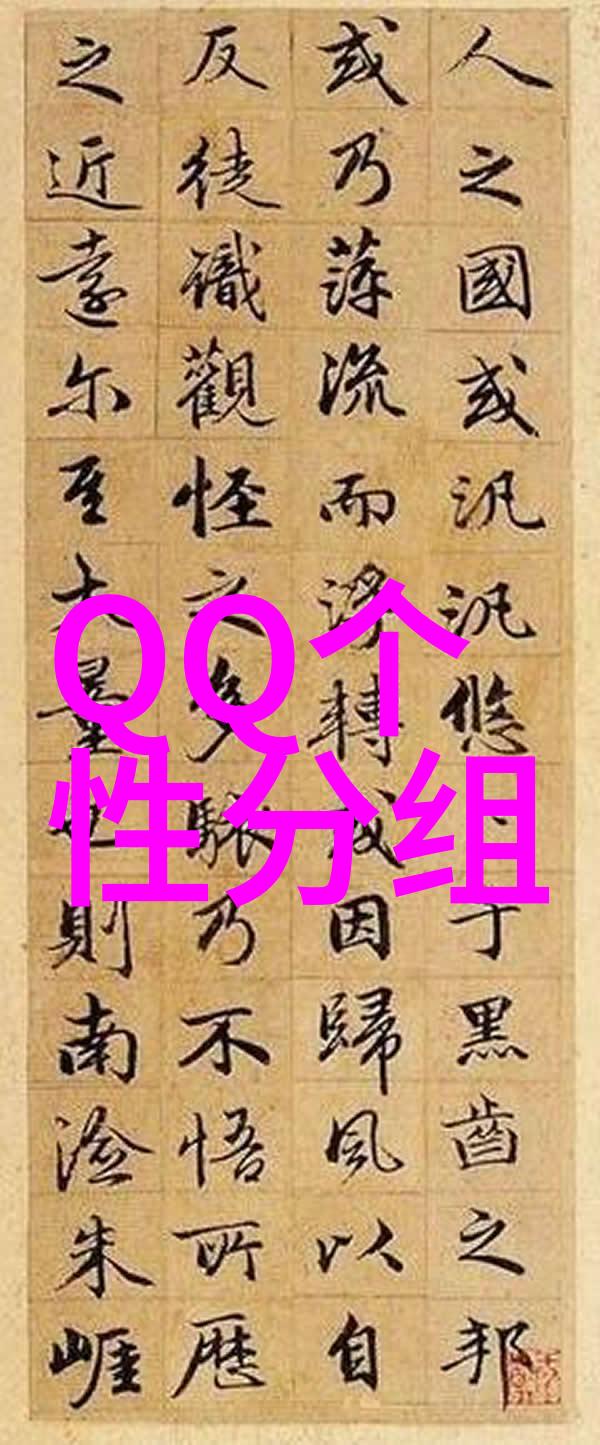 人之國或汎汎悠〻于黑齒之邦
或乃萍流而浮轉或因歸風以自
反徒識觀怪之多駭乃不悟所歷
之近遠尔至大量也則南澰朱崕
QQ个
性分组